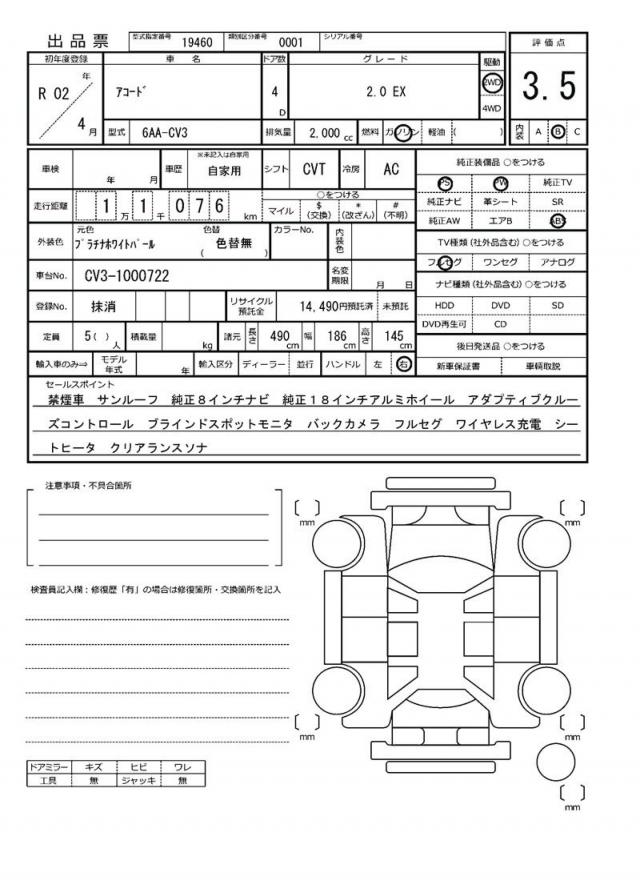 出品票 型式指定番号 19460 類別区分番号 0001 シリアル番号
初年度登録 車名 ドア数 グレード 駆動 評価点
R 02 年 4 月 ｱｺｰﾄﾞ 4 D 2.0 EX 2WD 4WD 3.5
型式 6AA-CV3 排気量 2,000 cc 燃料 ガソリン 軽油 ( ) 内装 A B C
車検 年 月 車歴 ※未記入は自家用 自家用 シフト CVT 冷房 AC 純正装備品 ○をつける
PS PW 純正TV
走行距離 1 万 1 千 0 7 6 km ○をつける
マイル $ (交換) * (改ざん) # (不明)
純正ナビ 革シート SR
純正AW エアB ABS
外装色 元色 ﾌﾟﾗﾁﾅﾎﾜｲﾄﾊﾟｰﾙ 色替 ( 色替無 ) カラーNo. 内装色
TV種類 (社外品含む) ○をつける
フルセグ ワンセグ アナログ
車台No. CV3-1000722 名変期限 月 日
ナビ種類 (社外品含む) ○をつける
登録No. 抹消 リサイクル預託金 14,490円預託済 未預託
HDD DVD SD
DVD再生可 CD
定員 5( ) 人 積載量 kg 諸元 長さ 490 cm 幅 186 cm 高さ 145 cm
後日発送品 ○をつける
輸入車のみ⇒ モデル年式 年 輸入区分 ディーラー 並行 ハンドル 左 右
新車保証書 車輌取説
セールスポイント
禁煙車 サンルーフ 純正８インチナビ 純正１８インチアルミホイール アダプティブクルー
ズコントロール ブラインドスポットモニタ バックカメラ フルセグ ワイヤレス充電 シー
トヒータ クリアランスソナ
注意事項・不具合箇所
mm
mm
検査員記入欄：修復歴「有」の場合は修復箇所・交換箇所を記入
mm
mm
ドアミラー キズ ヒビ ワレ
工具 無 ジャッキ 無
mm